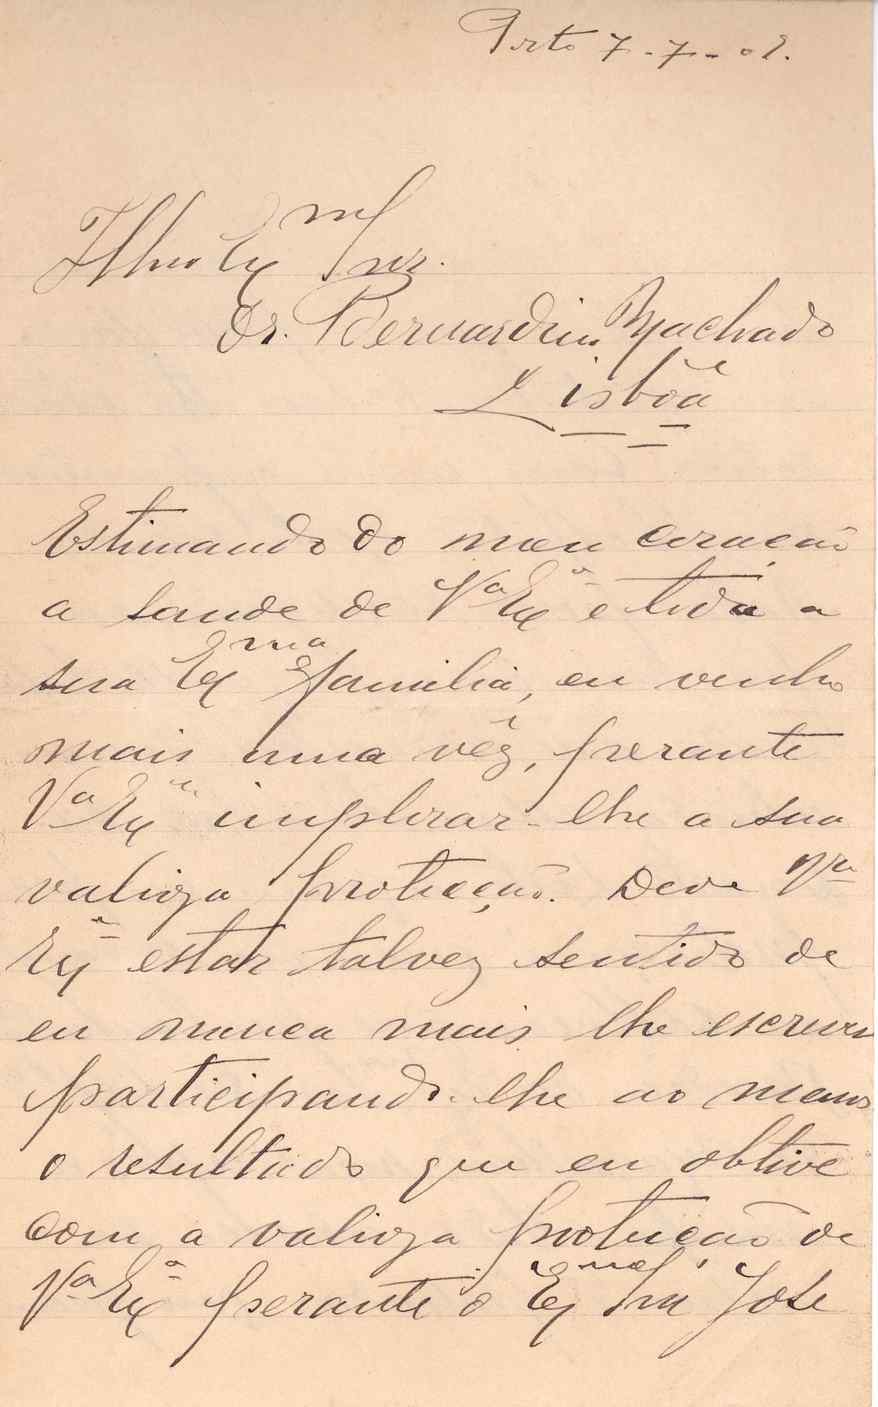 Porto 7-7-02.
Illmo Exmo Snr.
Dr. Bernardino Machado
Lisbôa
Estimando do meu coração
a saude de Va Exa e tôda a
sua Exma familia, eu venho
mais uma vêz, perante
Va Exa implorar-lhe a sua
valioza protecção. Deve Va
Exa estar talvez sentido de
eu nunca mais lhe escrever
participando-lhe ao menos
o resultado que eu obtive
com a valioza protecção de
Va Exa perante o Exmo Snr José